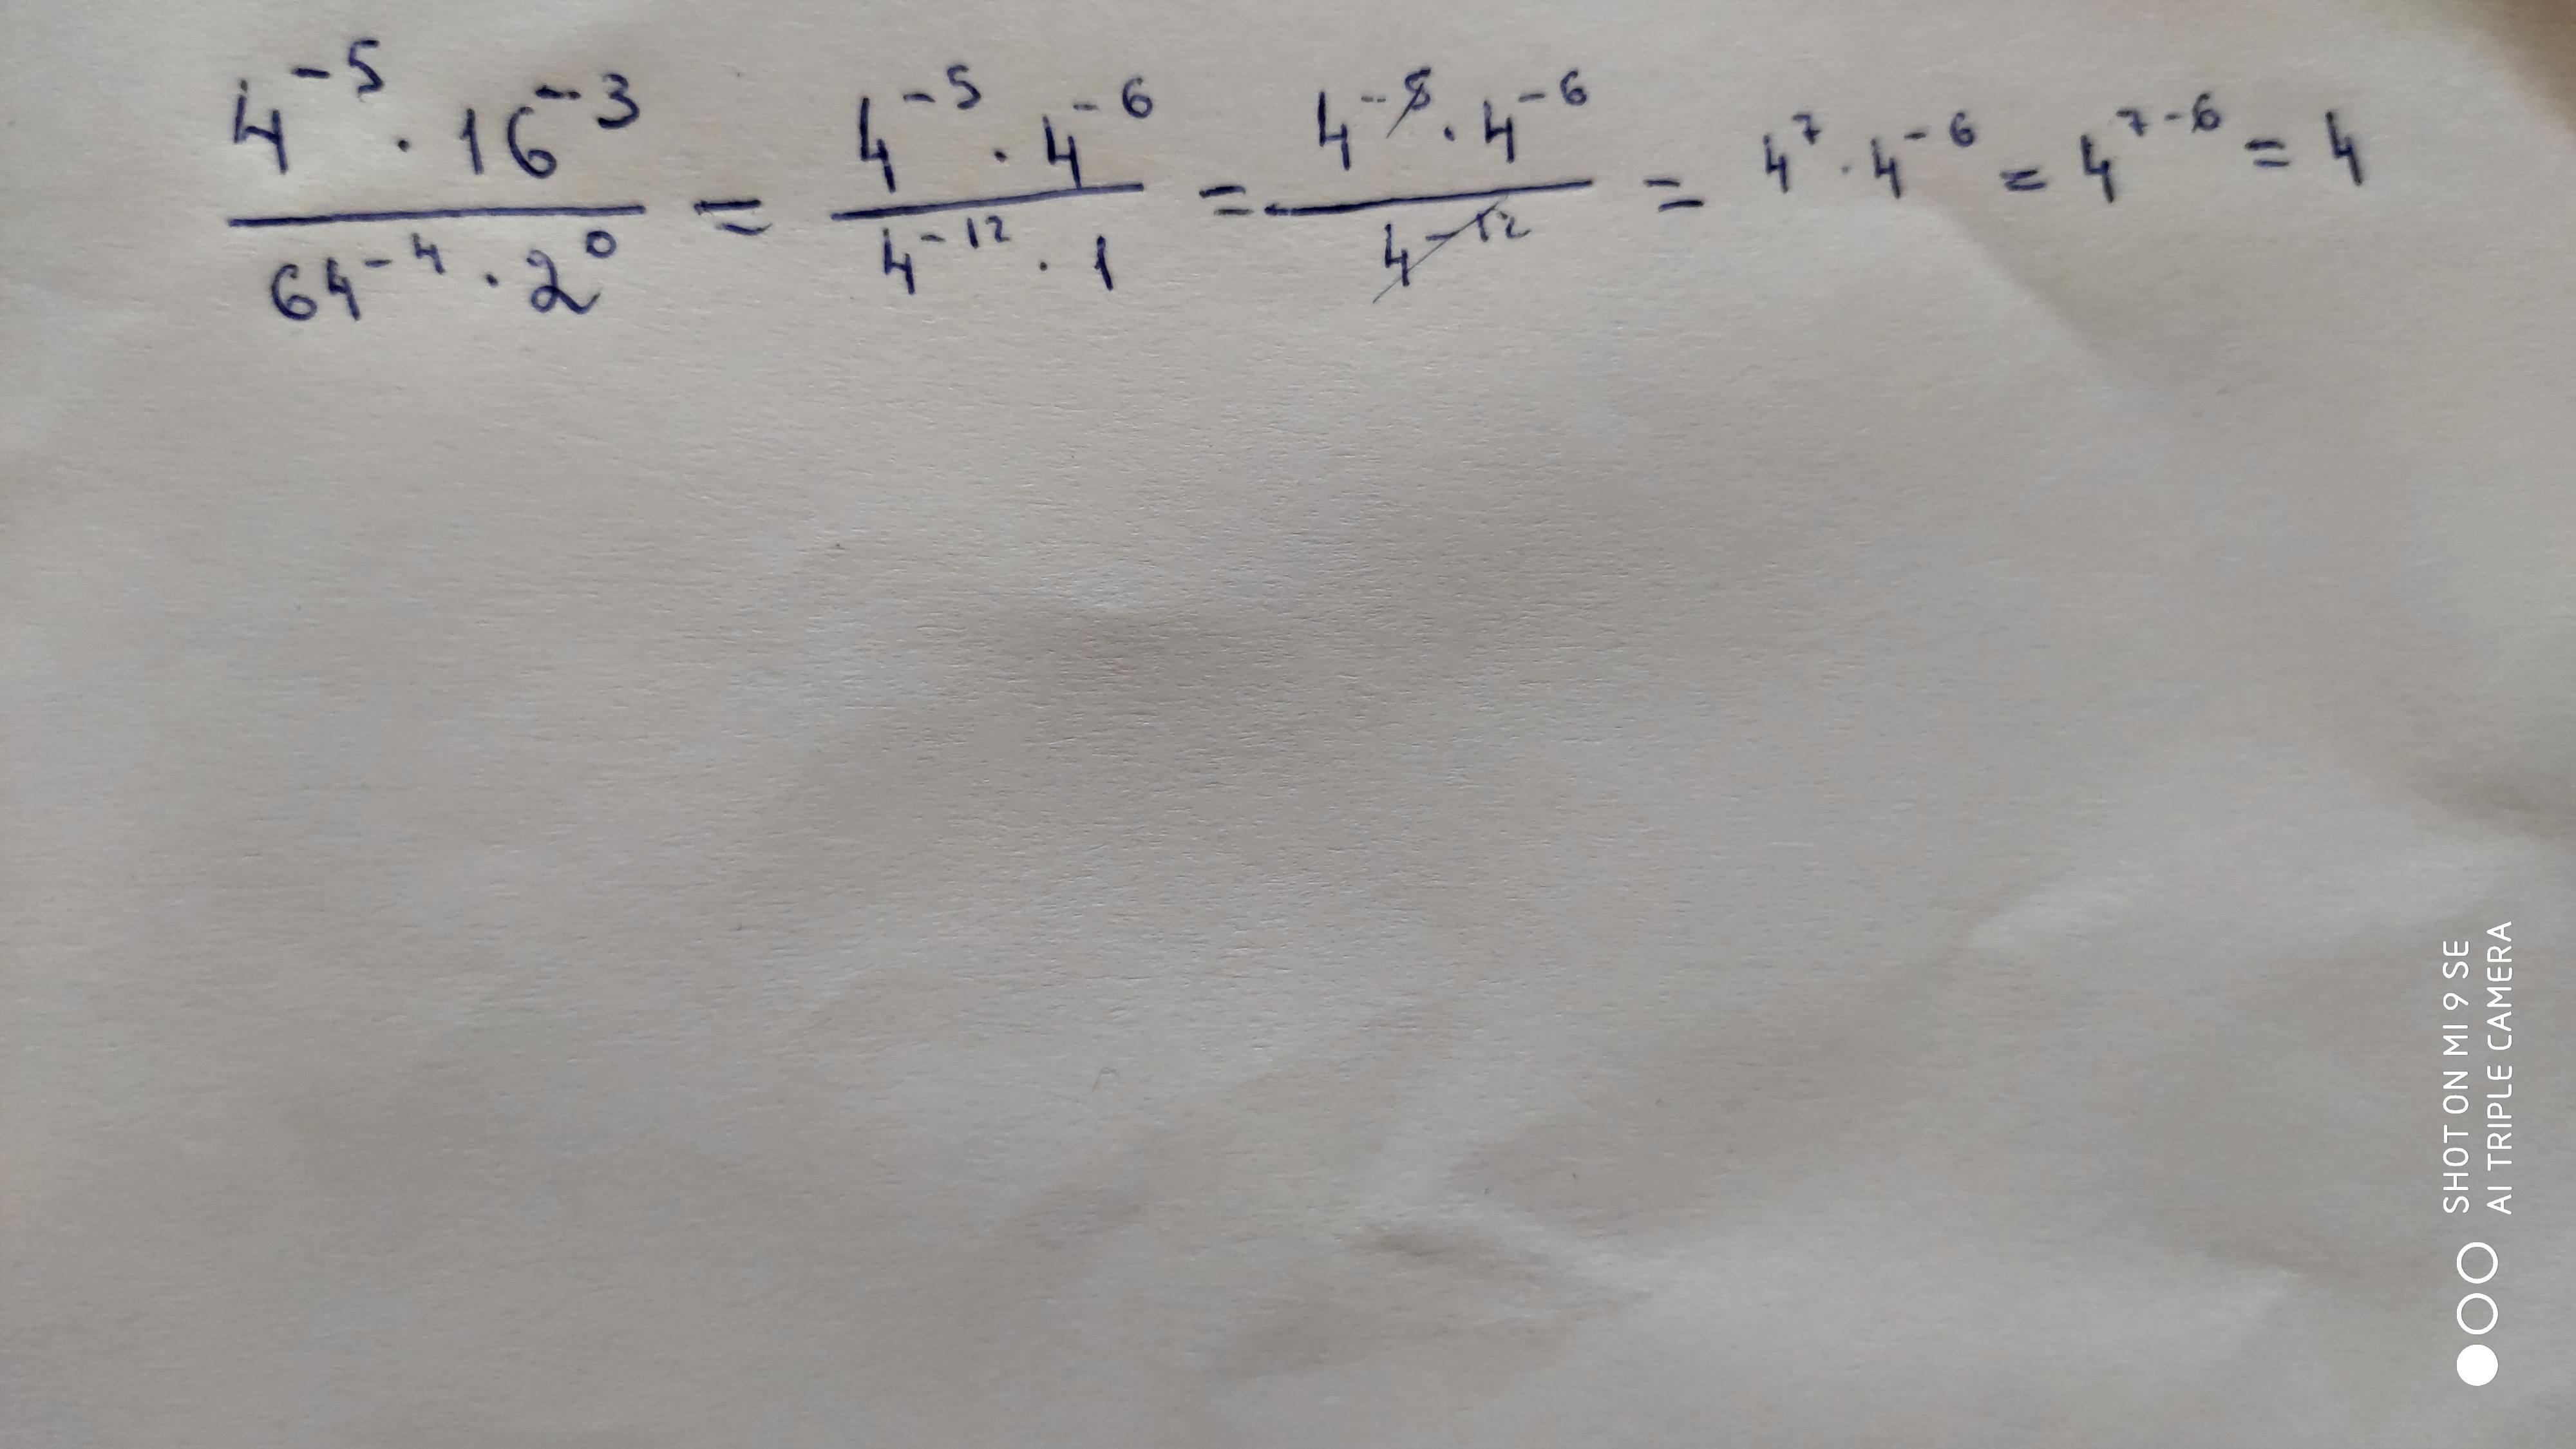 4⁻⁵ · 16⁻³ / 64⁻⁴ · 2⁰ = 4⁻⁵ · 4⁻⁶ / 4⁻¹² · 1 = 4⁻⁵ · 4⁻⁶ / 4⁻¹² = 4⁷ · 4⁻⁶ = 4⁷⁻⁶ = 4
SHOT ON MI 9 SE
AI TRIPLE CAMERA